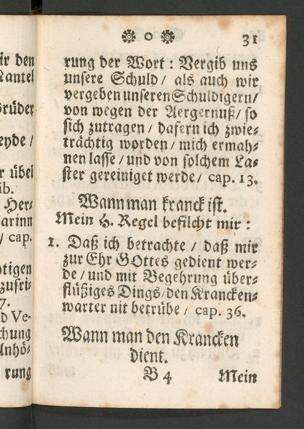 ir den
Mantel
Brüder
eyde /
r übel
ib.
Her-
arinn
/ cap.
htigen
zufri-
7.
d Ve-
chung
Anhö-
rung
❁ o ❁ 31
rung der Wort: Vergib uns
unsere Schuld / als auch wir
vergeben unseren Schuldigern/
von wegen der Aergernuß/ so
sich zutragen / dafern ich zwie-
trächtig worden/ mich ermah-
nen lasse / und von solchem La-
ster gereiniget werde/ cap. 13.
Wann man kranck ist.
Mein H. Regel befilcht mir:
1. Daß ich betrachte / daß mir
zur Ehr GOttes gedient wer-
de/ und mit Begehrung über-
flüßiges Dings/ den Krancken-
warter nit betrübe / cap. 36.
Wann man den Krancken
dient.
B 4 Mein